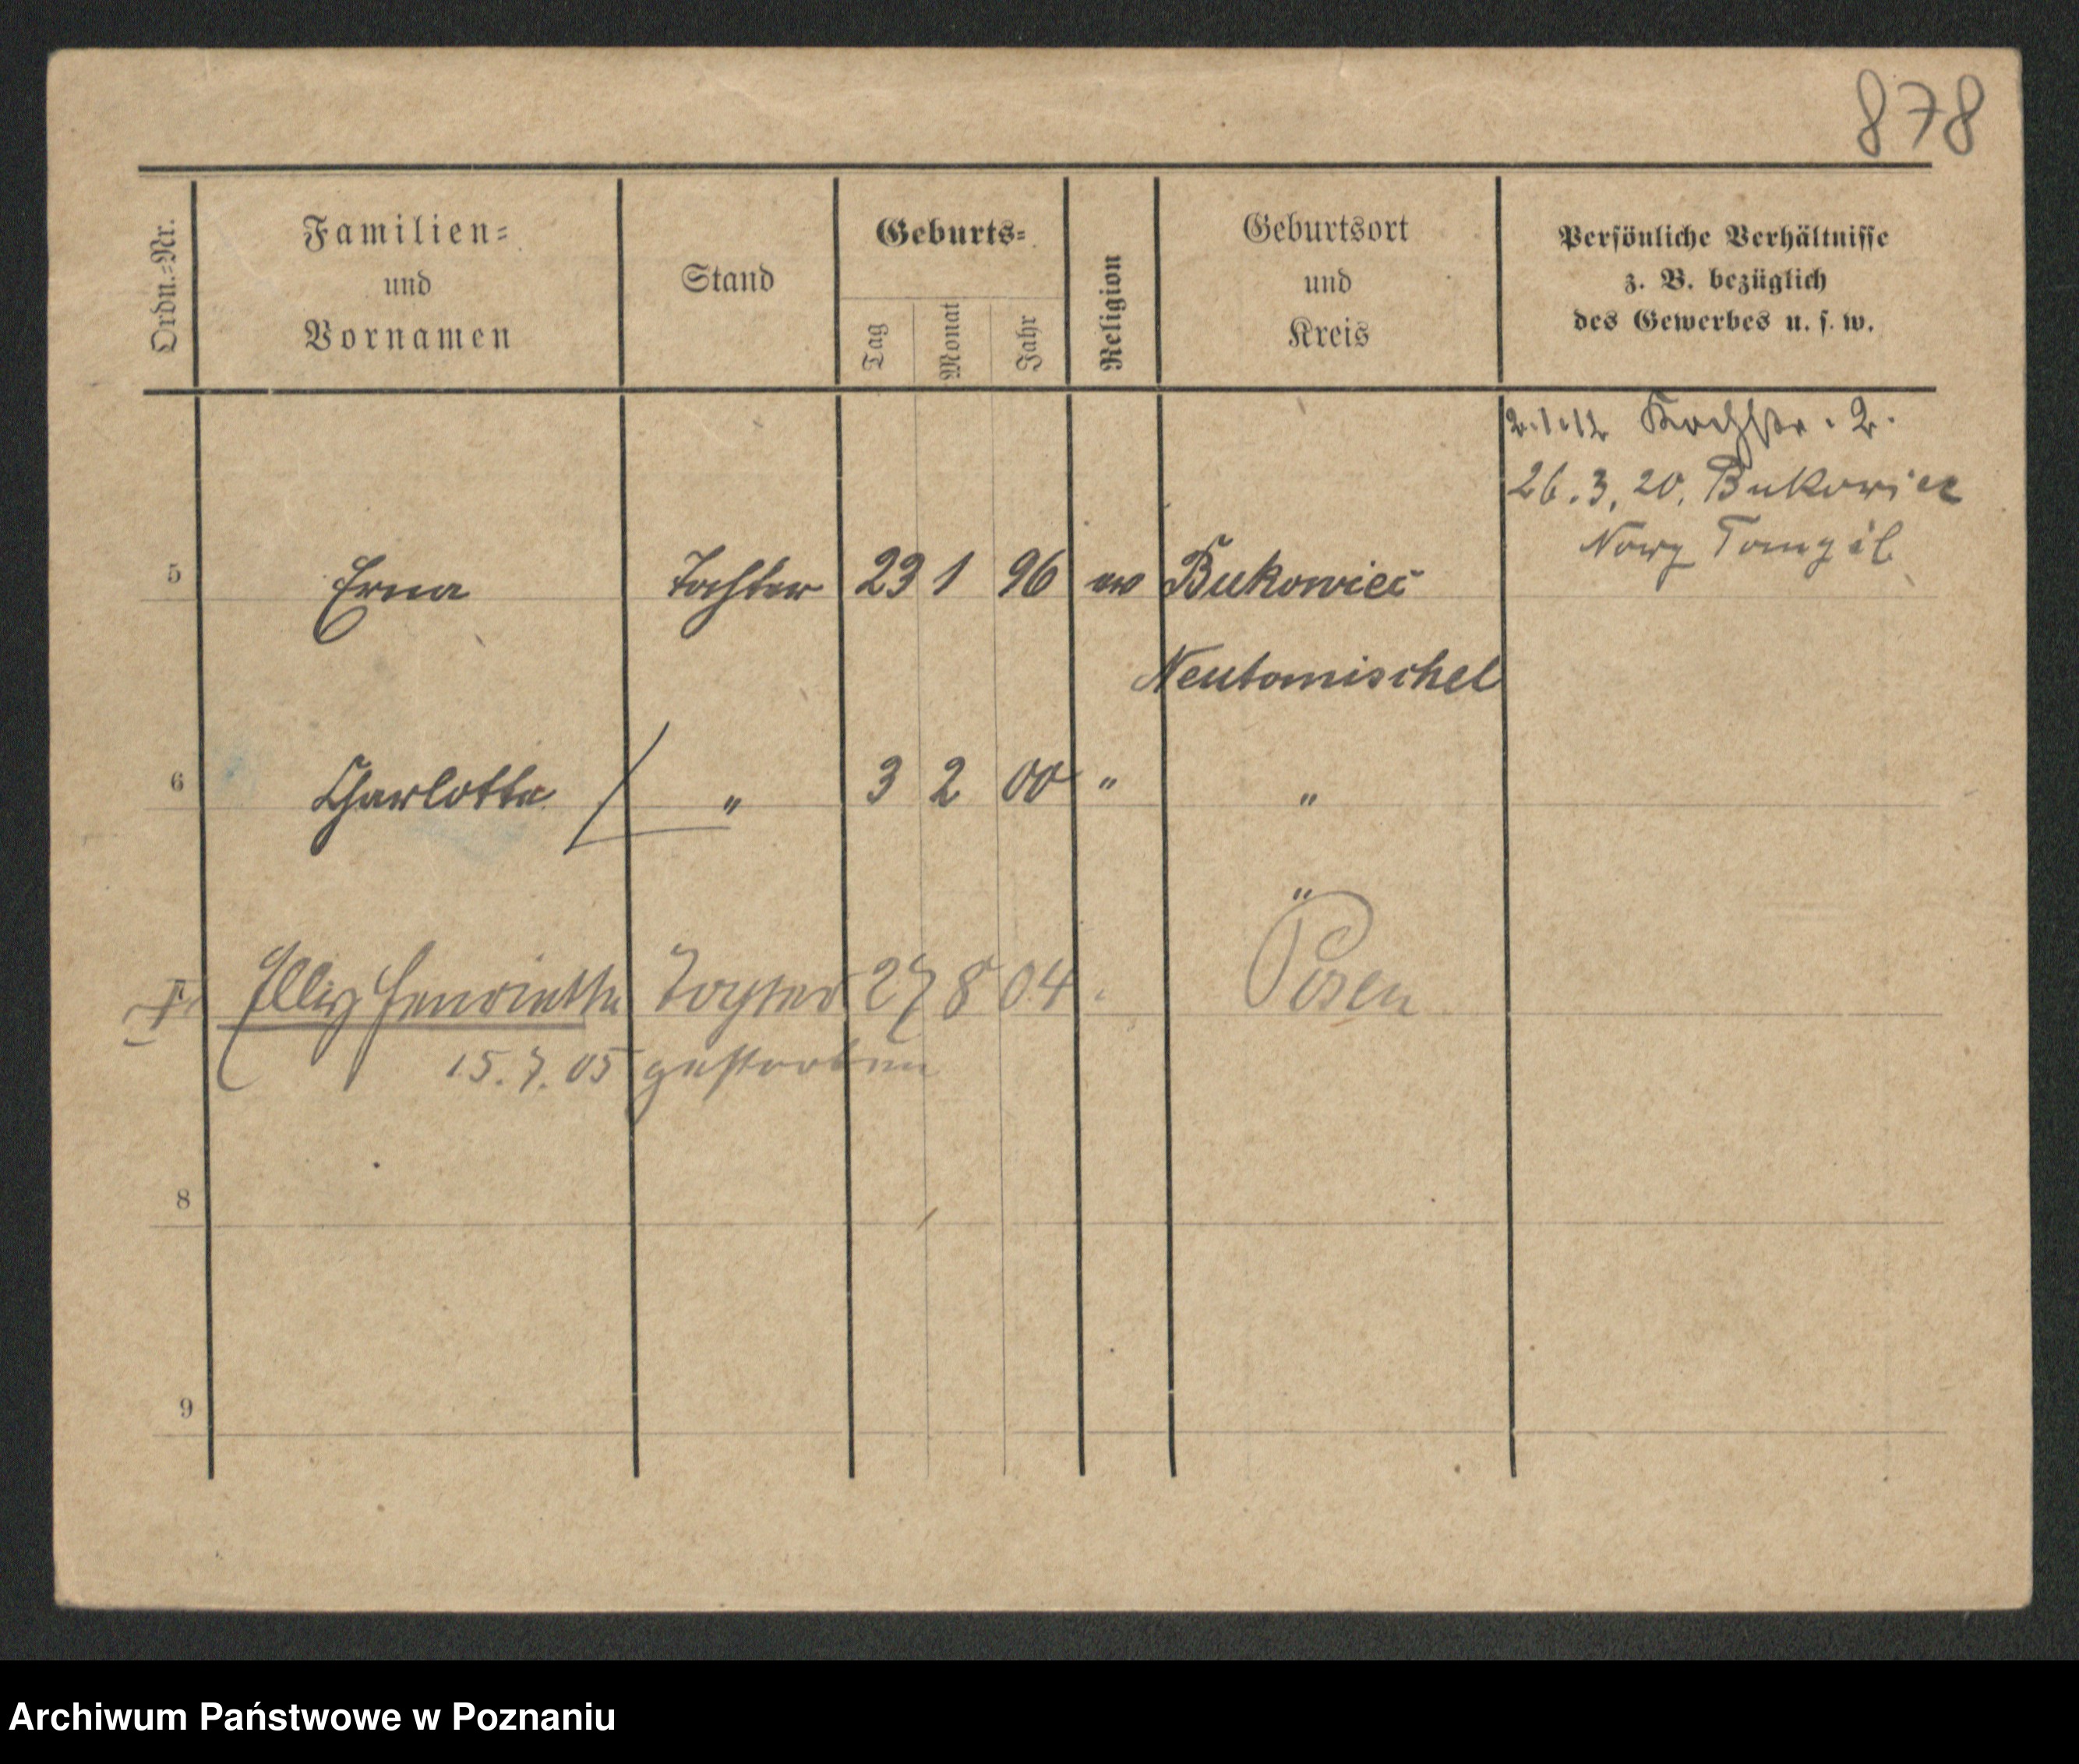 878
Ordn.-Nr.
Familien-
und
Vornamen
Stand
Geburts-
Tag
Monat
Jahr
Religion
Geburtsort
und
Kreis
Persönliche Verhältnisse
z. B. bezüglich
des Gewerbes u. s. w.
2.1.12 Kochstr. 2.
26.3.20. Bukowiec
Nowy Tomyśl
5 Erna Tochter 23 1 96 ev Bukowiec
Neutomischel
6 Charlotte " 3 2 00 " "
"
Elly Henriette Tochter 27 8 04 Posen
15.7.05 gestorben
8
9
Archiwum Państwowe w Poznaniu